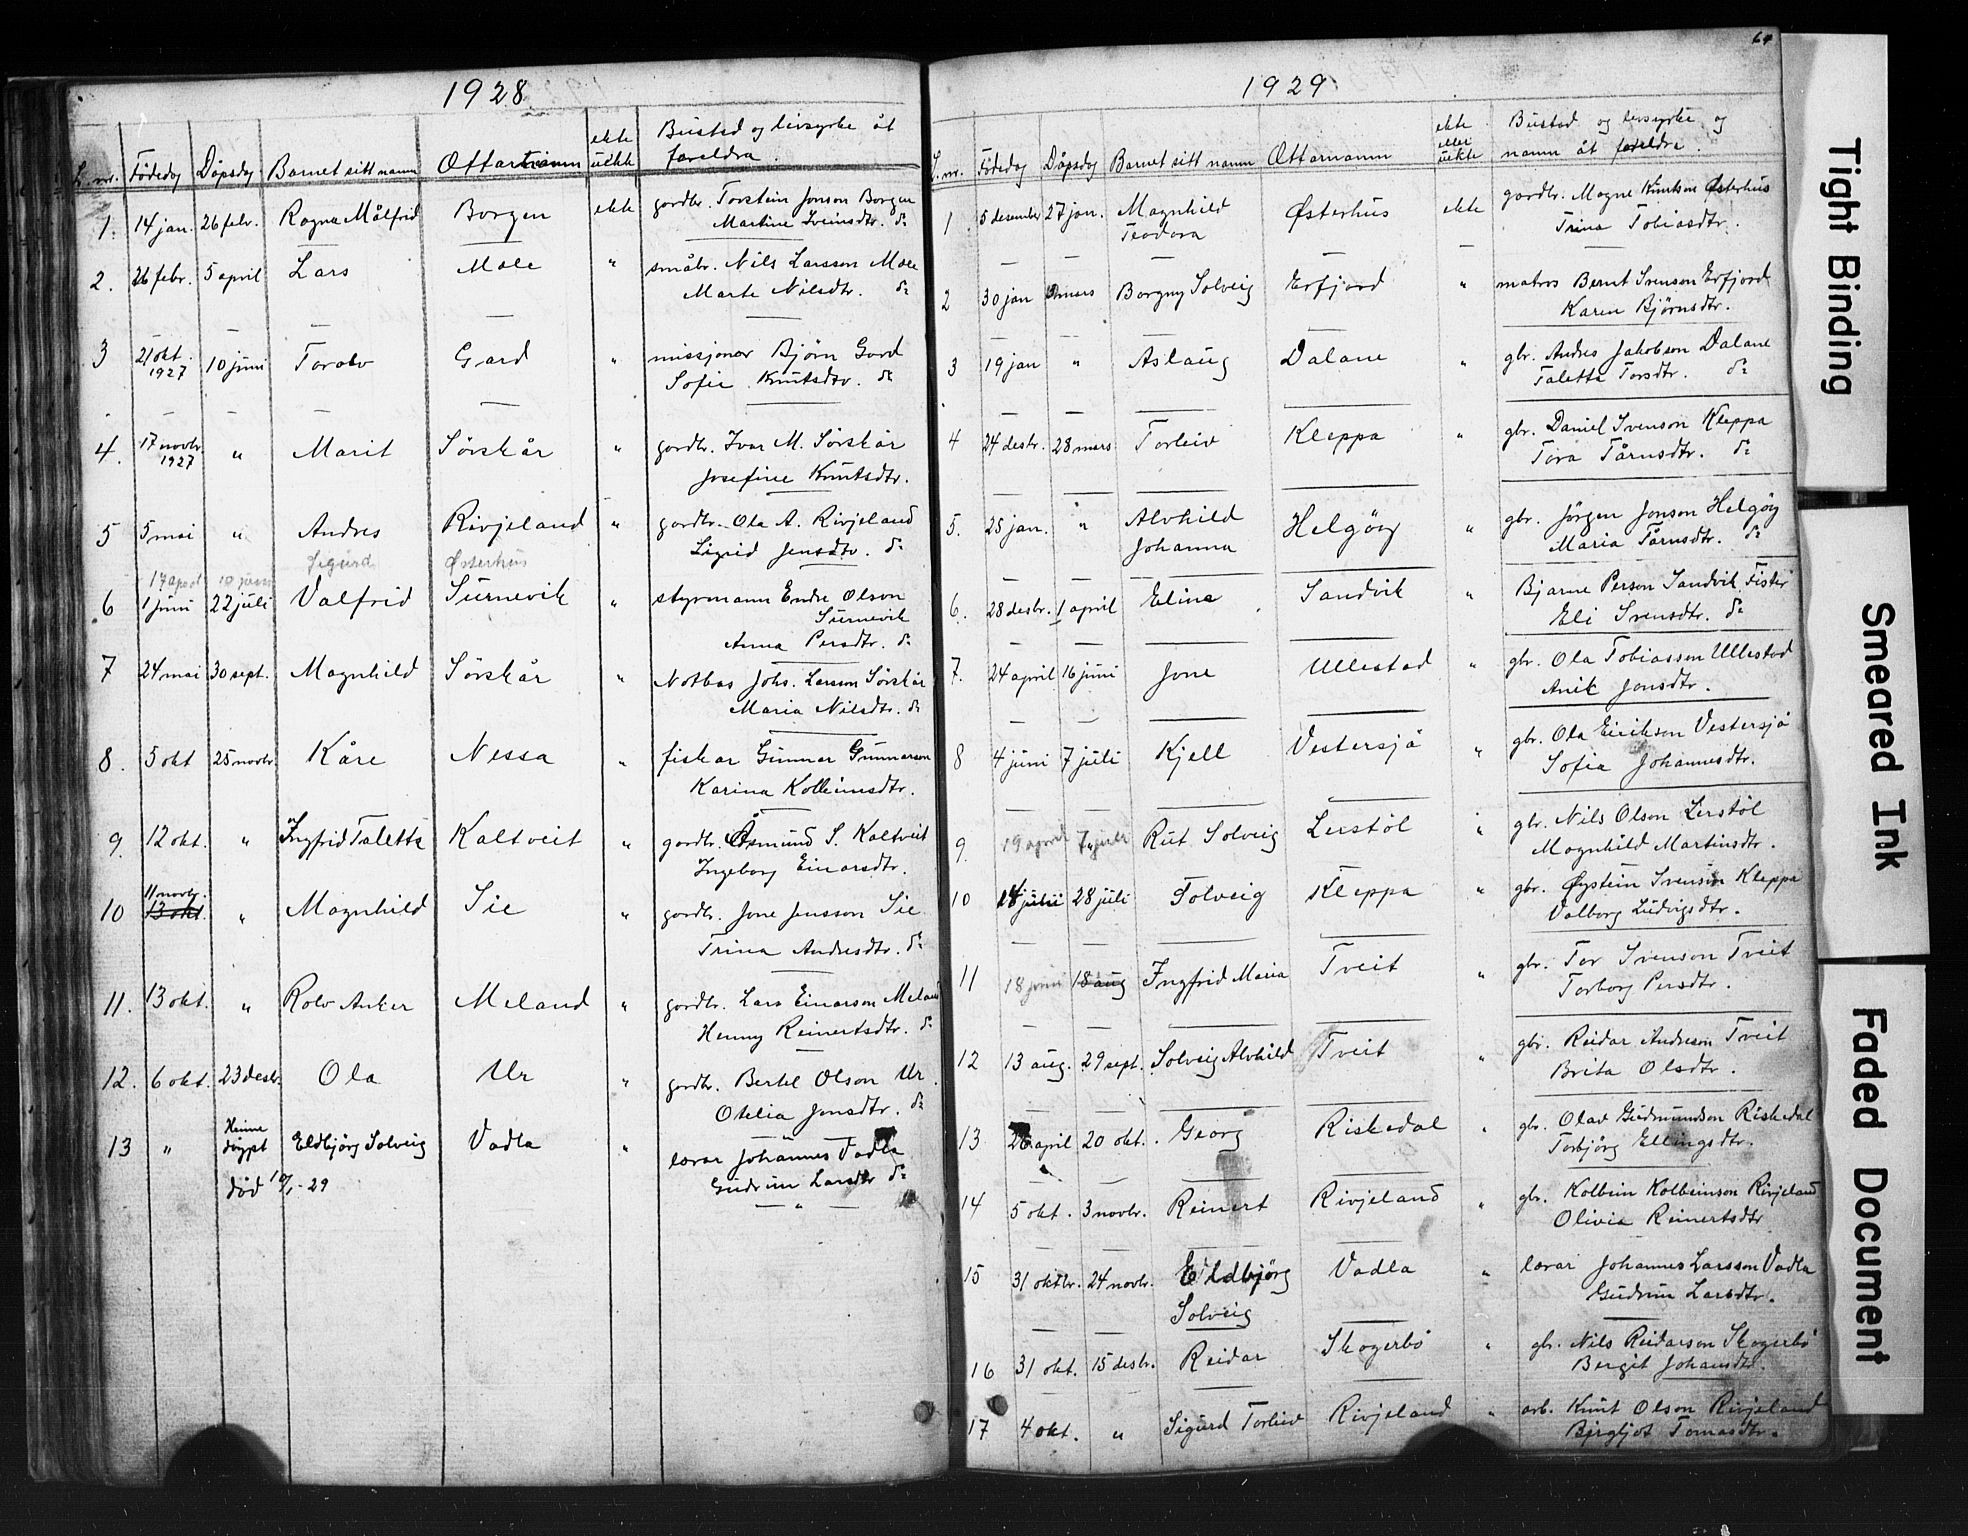 1928
L. nr. Födedag Dåpsdag Barnet sitt namn Ættarnamn ekte uekte Bustad og livsyrke åt foreldra.
1. 14 jan. 26 febr. Ragna Målfrid Borgen ekte gardbr. Torstein Jonson Borgen
Martine Sveinsdtr. do
2. 26 febr. 5 april Lars Mæle " småbr. Nils Larsson Mæle
Marte Nilsdtr. do
3 21 okt. 1927 10 juni Torolv Gard " missjonær Bjørn Gard
Sofie Knutsdtr. do
4. 17 novbr 1927 " Marit Sörskår " gardbr. Ivar M. Sörskår
Josefine Knutsdtr.
5 5 mai " Andres Rivjeland " gardbr. Ola A. Rivjeland
Sigrid Jensdtr. do
17 april 10 juni Sigurd Østerhus
6 1 juni 22 juli Valfrid Surnevik " styrmann Endre Olson
Surnevik
Anna Persdtr. do
7 24 mai 30 sept. Magnhild Sörskår " Notbas Johs. Larsson Sörskår
Maria Nilsdtr. do
8. 5 okt 25 novbr. Kåre Nessa " fiskar Gunnar Gunnarson
Karina Kolbeinsdtr.
9. 12 okt. " Ingfrid Taletta Kaltveit " gardbr. Åsmund S. Kaltveit
Ingeborg Einarsdtr.
11 novbr.
10 13 okt. " Magnhild Sie " gardbr. Jone Jensson Sie
Trina Andresdtr. do
11. 13 okt. " Rolv Anker Meland " gardbr. Lars Einarson Meland
Henny Reinertsdtr. do
12. 6 okt. 23 desbr. Ola Ur " gardbr. Bertel Olson Ur.
Otelia Jonsdtr. do
13 " Heime döypt Eldbjörg Solveig Vadla " lærar Johannes Vadla
Gudrun Larsdtr do
död 10/1-29
64
1929
L. nr. Födedag Dåpsdag Barnet sitt namn Ættarnamn ekte eller uekte Bustad og livsyrke og namn åt foreldra.
1 5 desember 27 jan. Magnhild Østerhus ekte gardbr. Magne Knutson Østerhus
Teodora Trina Tobiasdtr.
2 30 jan mars Borgny Solveig Erfjord " matros Bernt Svenson Erfjord
Karen Bjørnsdtr.
3 19 jan " Aslaug Dalane " gbr. Andres Jakobson Dalane
Taletta Torsdtr. do
4 24 desbr. 28 mars Torleiv Kleppa " gbr. Daniel Svenson Kleppa
Tora Tårnsdtr. do
5. 25 jan. " Alvhild Helgöy " gbr. Jörgen Jonson Helgöy
Johanna Maria Tårnsdtr. do
6. 28 desbr. 1 april Eline Sandvik " Bjarne Person Sandvik Fister
Eli Svensdtr. do
7. 24 april 16 juni Jone Ullestad " gbr. Ola Tobiassen Ullestad
Anik Jonsdtr.
8 4 juni 7 juli Kjell Vestersjö " gbr. Ola Eirikson Vestersjö
Sofia Johannesdtr.
9. 19 april 7 juli Rut Solveig Lerstöl " gbr. Nils Olson Lerstöl
Magnhild Martinsdtr.
10 14 juli 28 juli Solveig Kleppa " gbr. Øystein Svenson Kleppa
Valborg Ludvigsdtr.
11 18 juni 18 aug Ingfrid Maria Tveit " gbr. Tor Svenson Tveit
Torborg Persdtr.
12 13 aug. 29 sept. Solveig Alvhild Tveit " gbr. Reidar Andreson Tveit
Brita Olsdtr.
13 26 april 20 okt. Georg Riskedal " gbr. Olav Gudmundson Riskedal
Torbjörg Ellingsdtr.
14 5 okt. 3 novbr. Reinert Rivjeland " gbr. Kolbein Kolbeinson Rivjeland
Olivia Reinertsdtr
15 31 oktbr. 24 novbr. Eldbjörg Vadla " lærar Johannes Larsson Vadla
Solveig Gudrun Larsdtr.
16 31 okt. 15 desbr. Reidar Skogerbö " gbr. Nils Reidarson Skogerbö
Bergit Johansdtr.
17 4 okt. " Sigurd Torleiv Rivjeland " arb. Knut Olson Rivjeland
Bergljot Tomasdtr.
Tight Binding
Smeared Ink
Faded Document